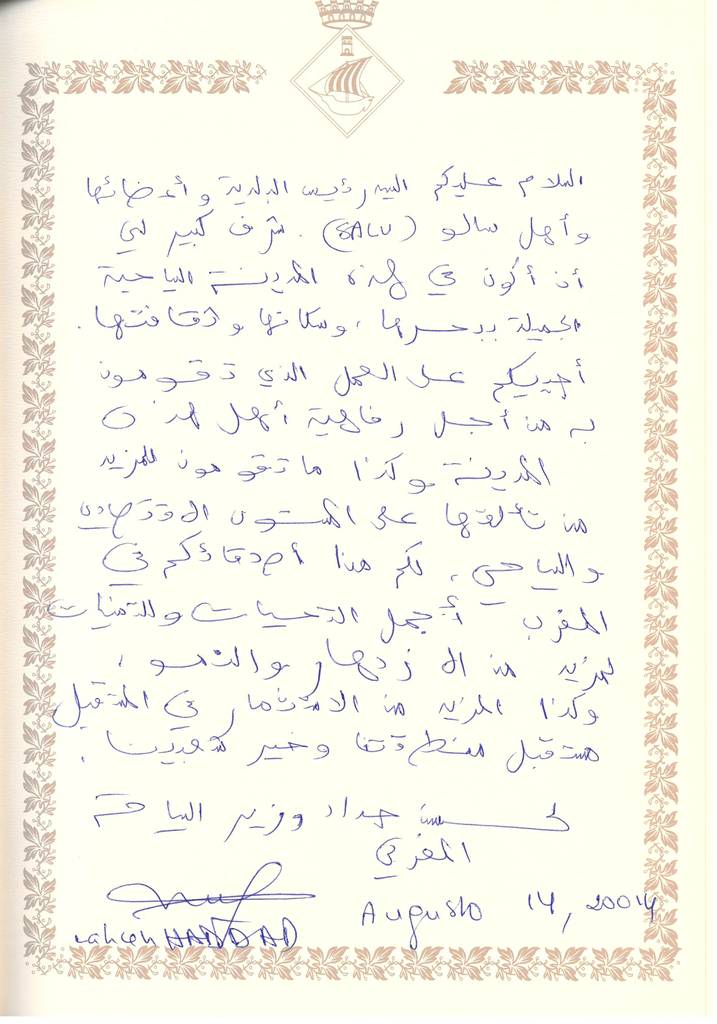 السلام عليكم السيد رئيس البلدية و أعضائها
وأهل سالو (SALU). شرف كبير لي
أن أكون في هذه المدينة السياحية
الجميلة ببحرها، وسكانها وثقافتها.
أحييكم على العمل الذي تقومون
به من أجل رفاهية أهل هذه
المدينة وكذا ما تقومون للمزيد
من تألقها على المستوى الاقتصادي
والسياحي. لكم منا أصدقاؤكم في
المغرب أجمل التحيات والتمنيات
لمزيد من الازدهار والنمو،
وكذا المزيد من الاستثمار في المستقبل
مستقبل منطقتنا وخير شعبينا.
لحسن حداد وزير السياحة
المغربي
Lahcen HADDAD
Augusto 14, 20014